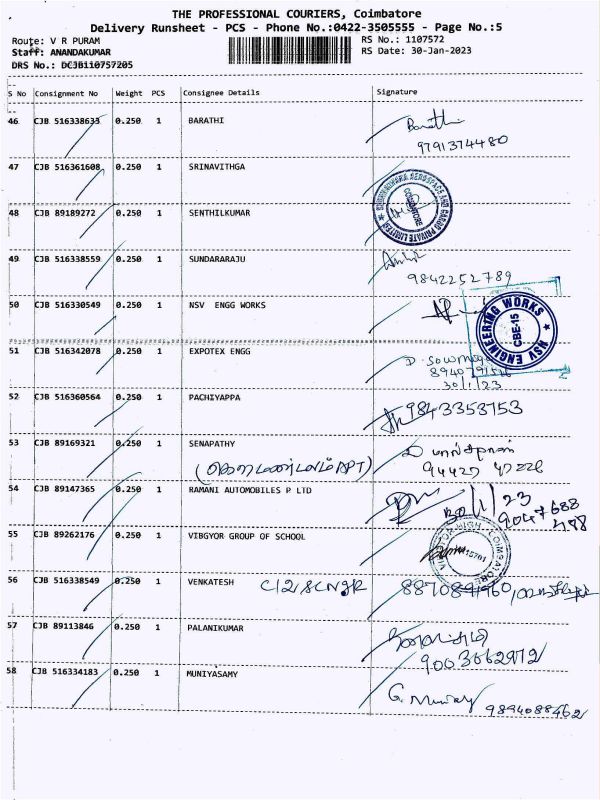 THE PROFESSIONAL COURIERS, Coimbatore
Delivery Runsheet - PCS - Phone No.:0422-3505555 - Page No.:5
Route: V R PURAM RS No.: 1107572
Staff: ANANDAKUMAR RS Date: 30-Jan-2023
DRS No.: DCJB110757205
S No Consignment No Weight PCS Consignee Details Signature
46 CJB 516338633 0.250 1 BARATHI Barathi
9791374480
47 CJB 516361608 0.250 1 SRINAVITHGA
48 CJB 89189272 0.250 1 SENTHILKUMAR COIMBATORE
49 CJB 516338559 0.250 1 SUNDARARAJU
9842252789
50 CJB 516330549 0.250 1 NSV ENGG WORKS NSV ENGINEERING WORKS CBE-15
51 CJB 516342078 0.250 1 EXPOTEX ENGG
30/1/23
52 CJB 516360564 0.250 1 PACHIYAPPA 9843353753
53 CJB 89169321 0.250 1 SENAPATHY
54 CJB 89147365 0.250 1 RAMANI AUTOMOBILES P LTD 30/1/23
55 CJB 89262176 0.250 1 VIBGYOR GROUP OF SCHOOL
56 CJB 516338549 0.250 1 VENKATESH
57 CJB 89113846 0.250 1 PALANIKUMAR
9003662972
58 CJB 516334183 0.250 1 MUNIYASAMY G. Muniay
9894088462